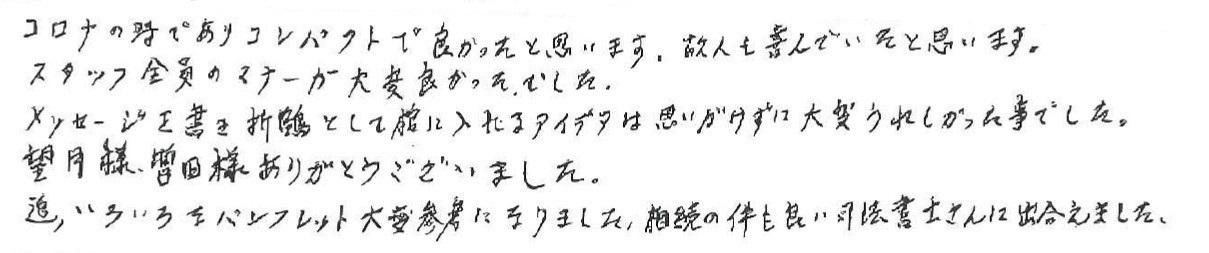 コロナの時でありコンパクトで良かったと思います。故人も喜んでいたと思います。
スタッフ全員のマナーが大変良かったでした。
メッセージを書き折鶴として棺に入れるアイデアは思いがけずに大変うれしかった事でした。
望月様、曽田様ありがとうございました。
追,いろいろなパンフレット大変参考になりました,相続の件も良い司法書士さんに出合えました、